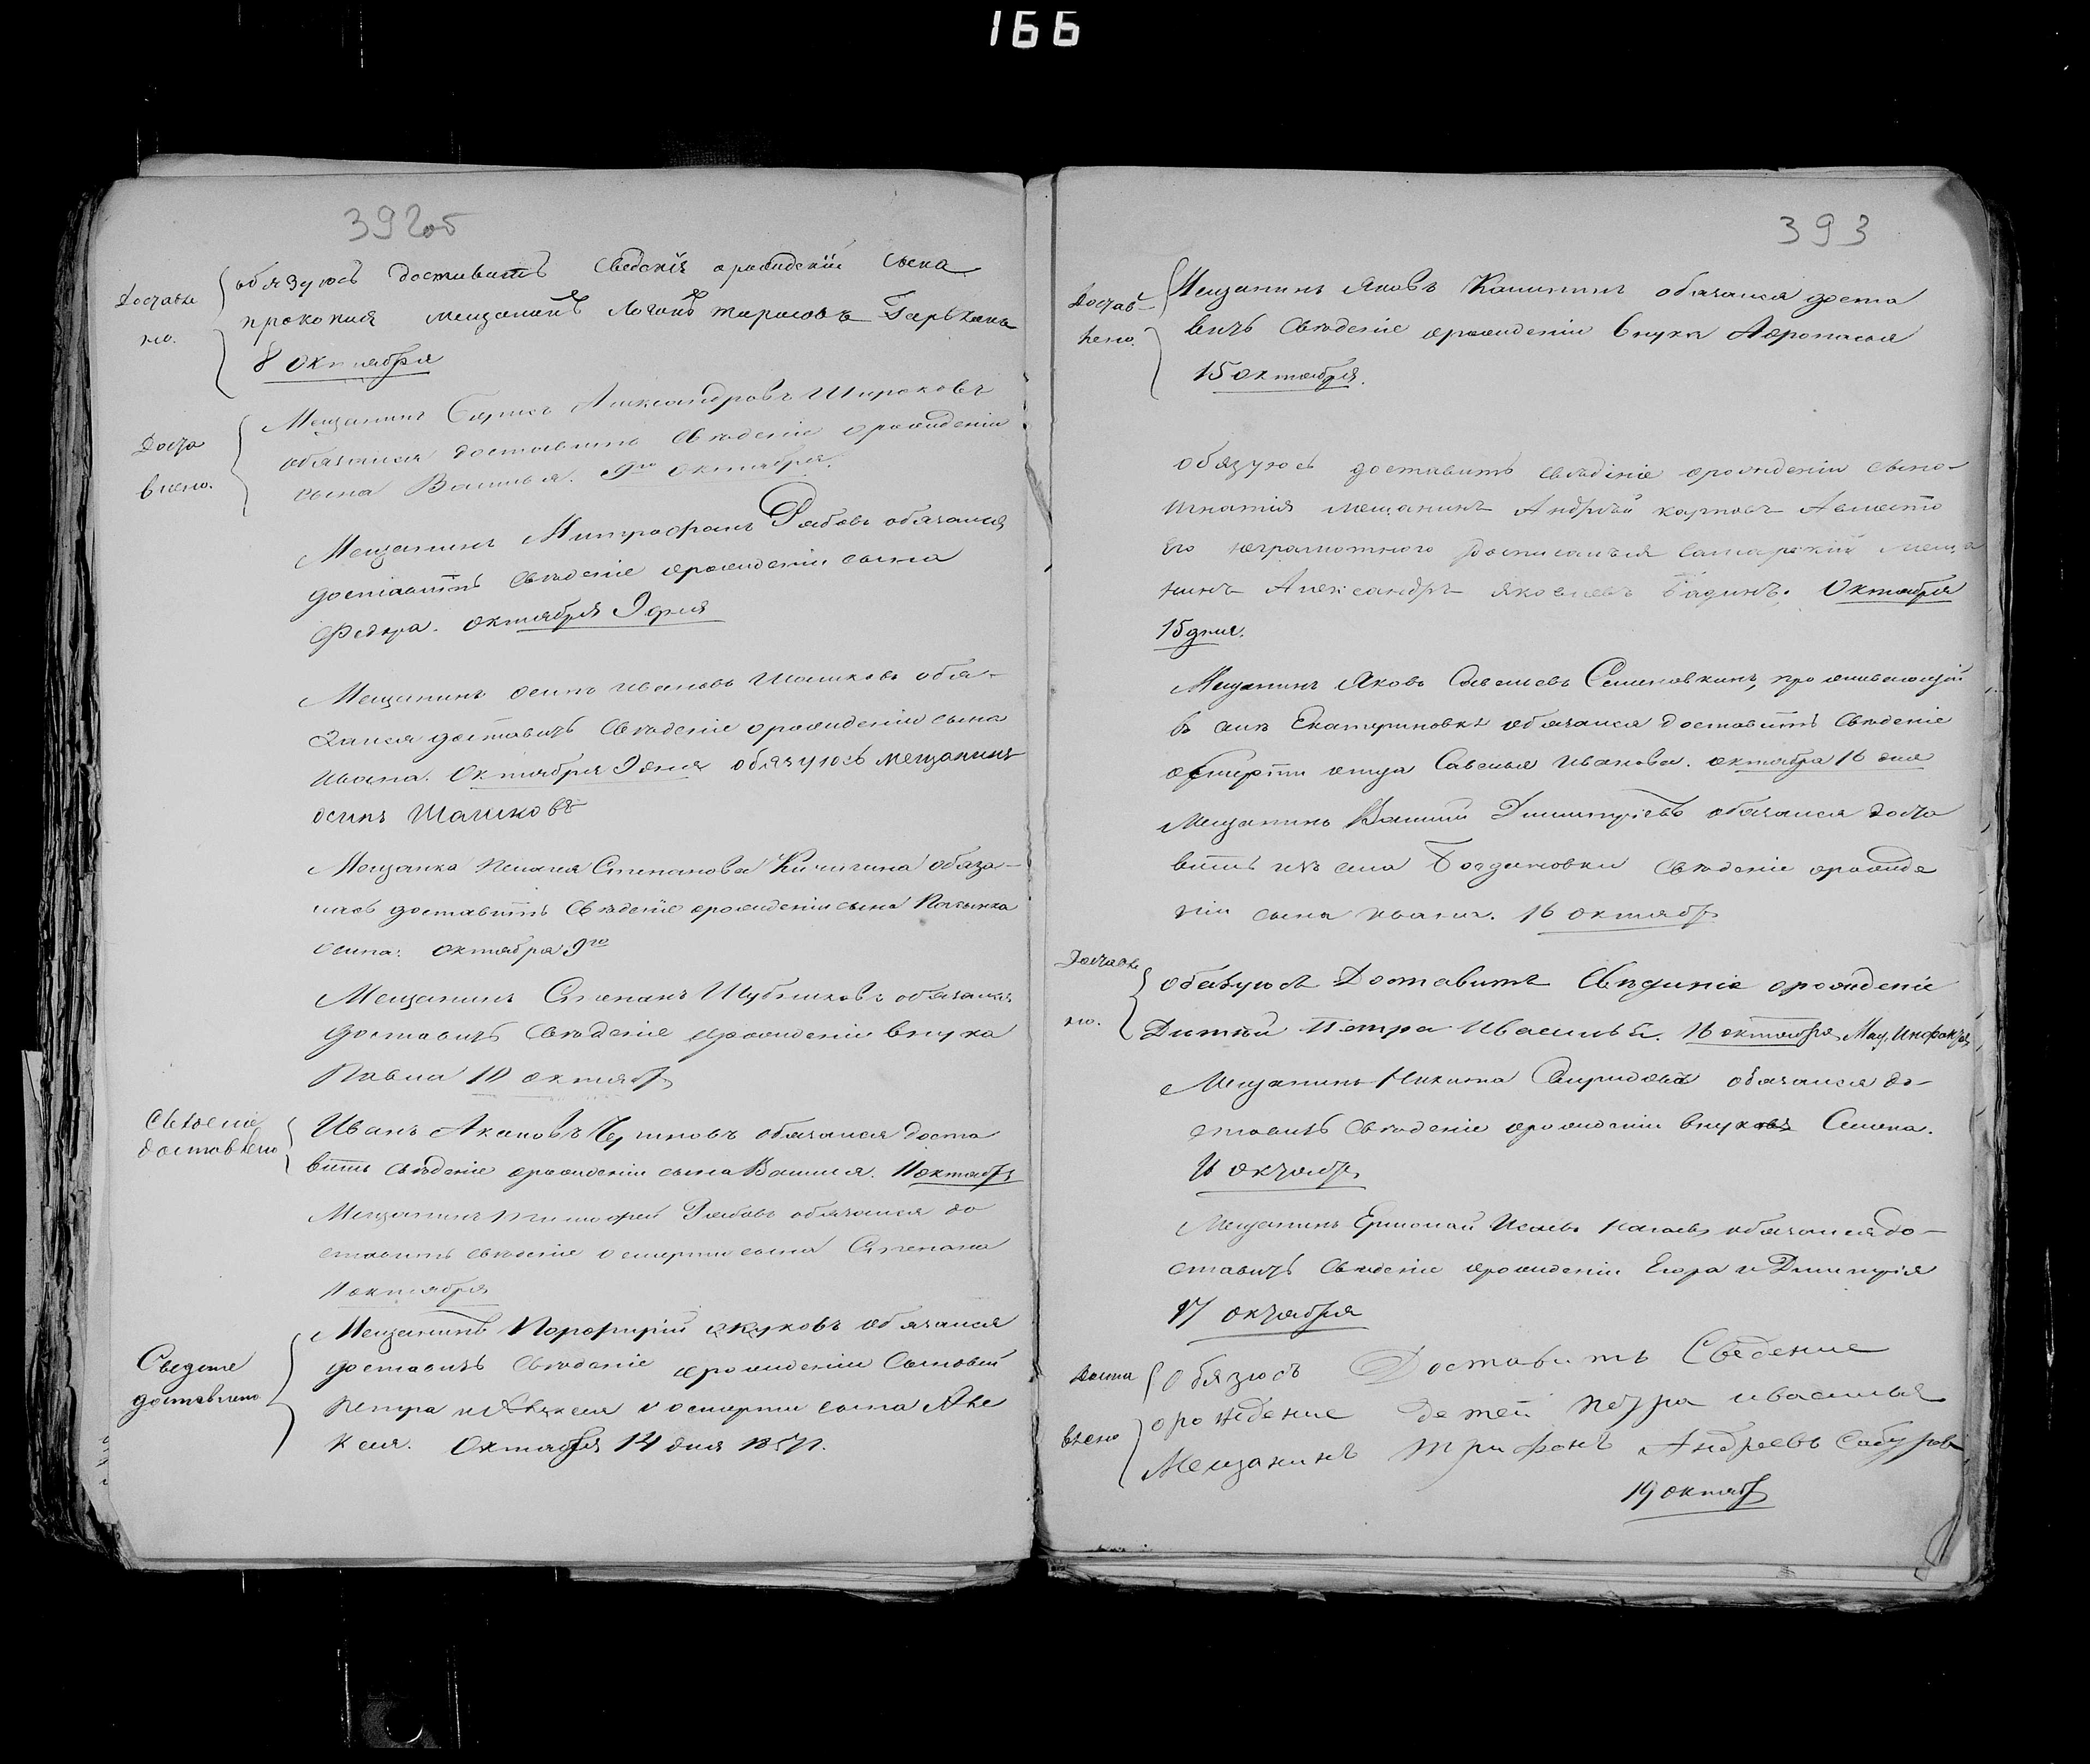 166
392 об
Доставле
но.
обязуюсь доставить сведения орождении сына
прокопия мещанинъ Логинъ тарасовъ
8 октября
Доста
влено.
Мещанинъ Борисъ Александровъ Широковъ
обязался доставить свѣдение орождении
сына Василья. 9го октября.
Мещанинъ Митрофанъ Рябовъ обязался
доставить свѣдение орождении сына
Федора. октября 9 дня
Мещанинъ осипъ ивановъ Шашковъ обя-
зался доставить свѣдение орождении сына
ивана. Октября 9 дня обязуюсь мещанинъ
осипъ Шашковъ
Мещанка Степанова обяза-
лась доставить свѣдение орождении сына
осипа. октября 9го
Мещанинъ Степанъ Шубниковъ обязался
доставить свѣдение орождении внука
Павла 10 октяб
Свѣдение
доставлено
Иванъ обязался доста
вить свѣдение орождении сына Василя. 11 октяб
Мещанинъ Тимофей Рябовъ обязался до
ставить свѣдение о смерти сына Степана
11 октября
Сведение
доставлено
Мещанинъ Порфирий обязался
доставить свѣдение орождении сыновей
Петра и Алексея и осмерти сына Але
ксея. Октября 14 дня 1857.
393
Достав-
лено.
Мещанинъ Яковъ Калининъ обязался доста
вить свѣдение орождении внука Афонасья
15 октября.
обязуюсь доставить свѣдение орождении сына-
игнатия мещанинъ Андрей карповъ Авместо
его неграмотного росписался самарский меща
нинъ Александръ яковлевъ Бадинъ. Октября
15 дня.
Мещанинъ Яковъ Савельевъ проживающий
въ селе Екатериновке обязался доставить свѣдение
осмерти отца Савелья иванова. октября 16 дня
Мещанинъ Василий Димитриевъ обязался доста
вить изъ села свѣдение орожде
нии сына ивана. 16 октябр
Доставле
но.
обезуюсь Доставить Свѣдение орождение
Дитѣй Петра ивасилья. 16 октября
Мещанинъ Никита обязался до-
ставить свѣдение орождении внуковъ Семена.
октябр
Мещанинъ Ермолай обязался до-
ставить свѣдение орождении Егора и Димитрия
17 октября
Доста
влено
Обязюсъ Доставить Сведение
орождение детей петра ивасилья
Мещанинъ трифонъ Андреевъ Сабуровъ
19 октяб